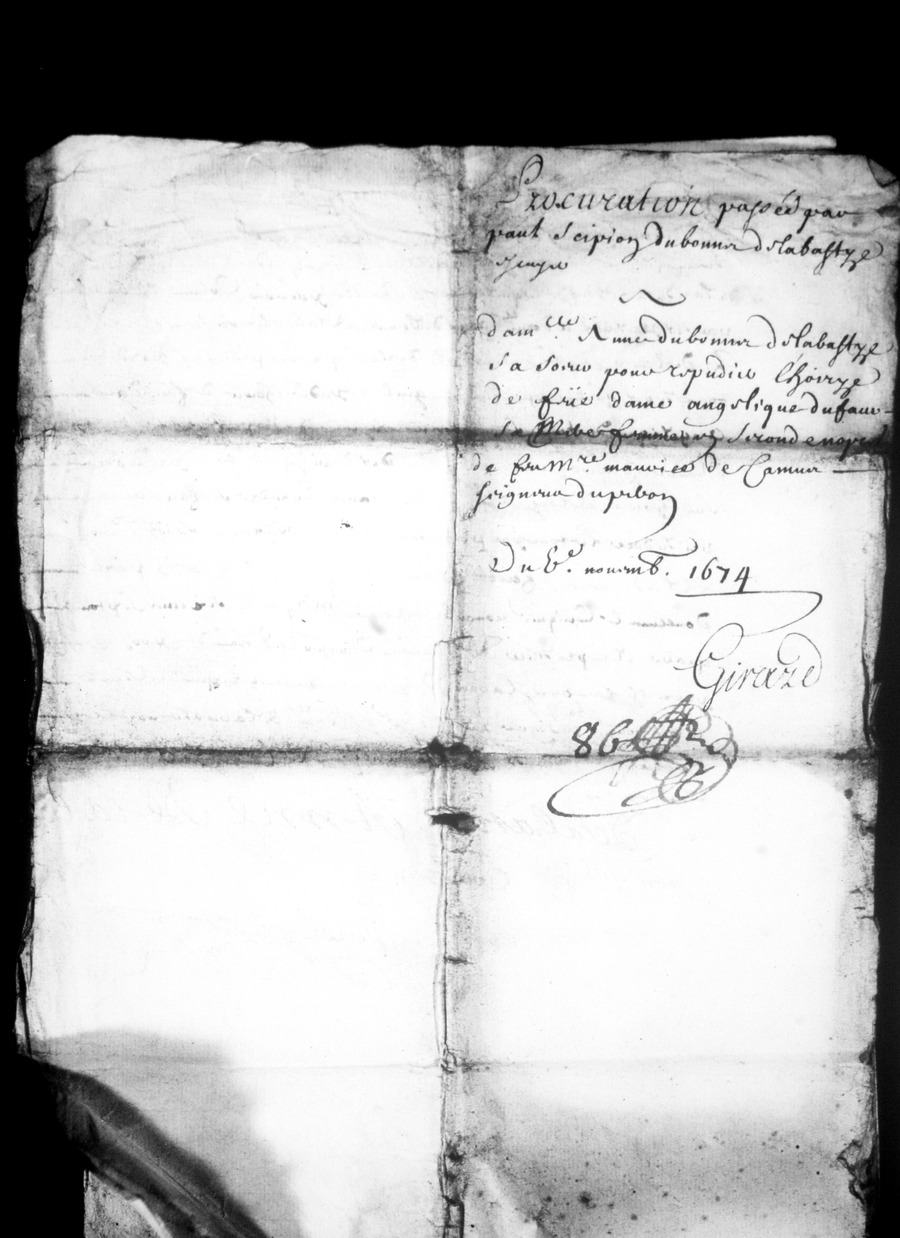 Procuration passée par
paul scipion dubonner delabastye
escuyer
damlle Anne dubonner delabastye
sa soeur pour repudier Lhoirye
de feüe dame angelique dufaure
sa Mere femme en seconde nopces
de feu Mre. maurice de Camus
seigneur du
Du Ve. novemb. 1674
Girard
86